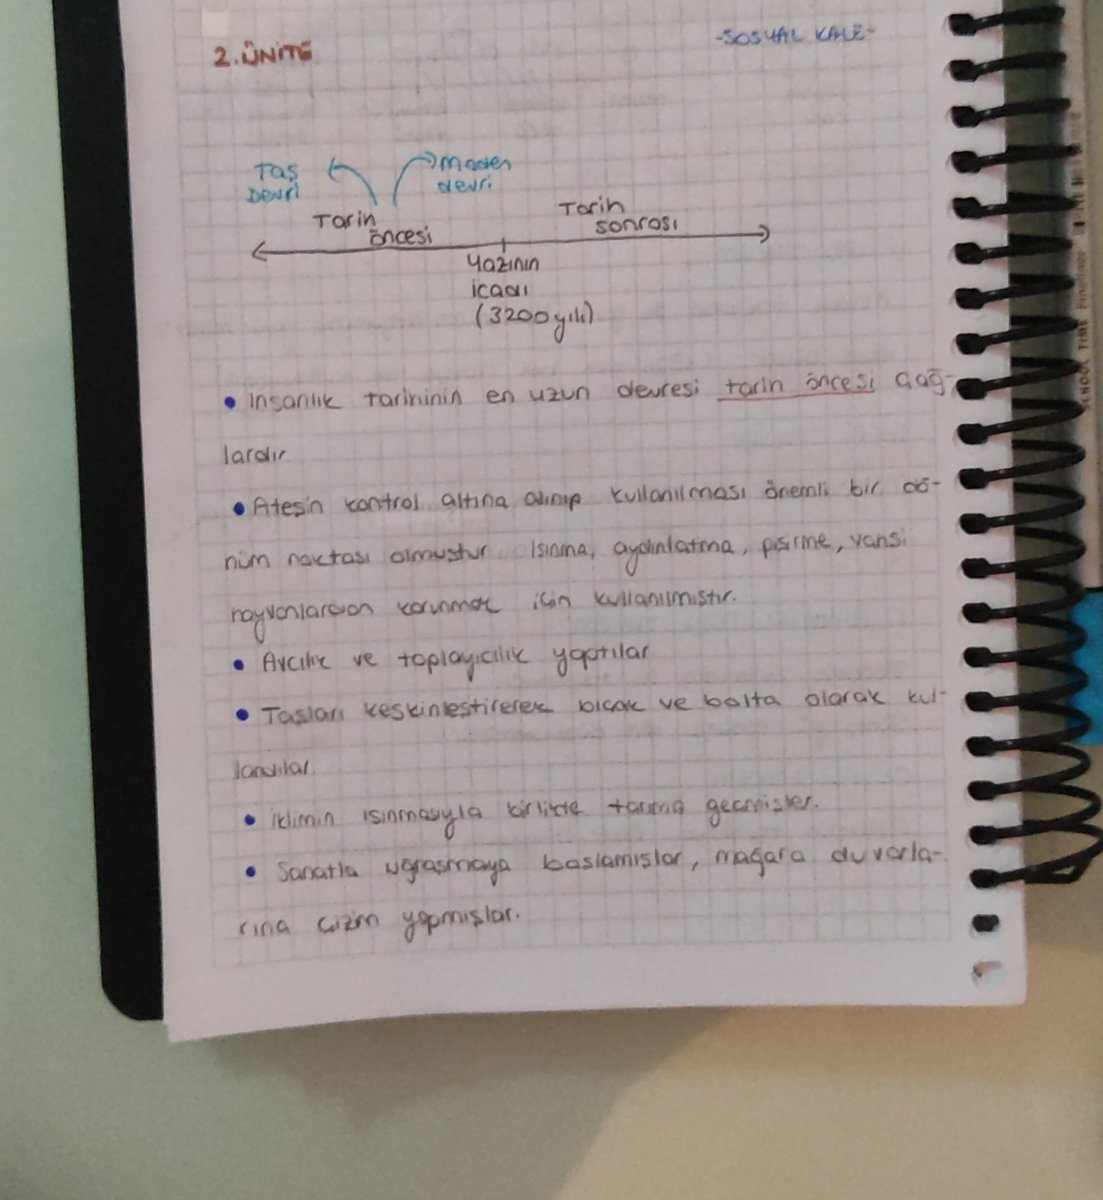 -SOSYAL KALE-
2.ÜNİTE
Taş
Devri
Maden
devri
Tarih
öncesi
Tarih
sonrası
Yazının
icadı
(3200 yılı)
• İnsanlık tarihinin en uzun devresi tarih öncesi çağ-
lardır
• Ateşin kontrol altına alınıp kullanılması önemli bir dö-
nüm noktası olmuştur. Isınma, aydınlatma, pişirme, vahşi
hayvanlardan korunmak için kullanılmıştır.
• Avcılık ve toplayıcılık yaptılar
• Taşları keskinleştirerek bıçak ve balta olarak kul-
landılar.
• İklimin ısınmasıyla birlikte tarıma geçmişler.
• Sanatla uğraşmaya başlamışlar, mağara duvarla-
rına çizim yapmışlar.